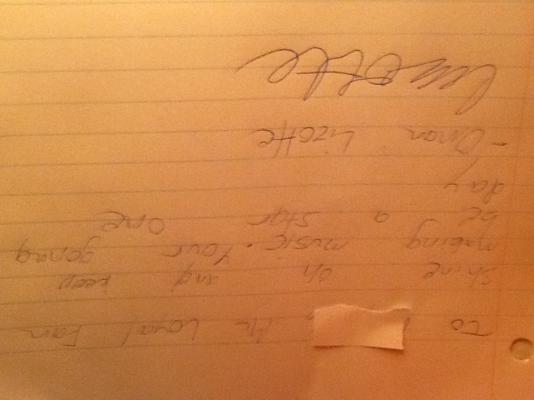 To Mr Loyal Fan
shine on ang keep
making music. Your gonag
be a star one
day
- Oman Lizotte